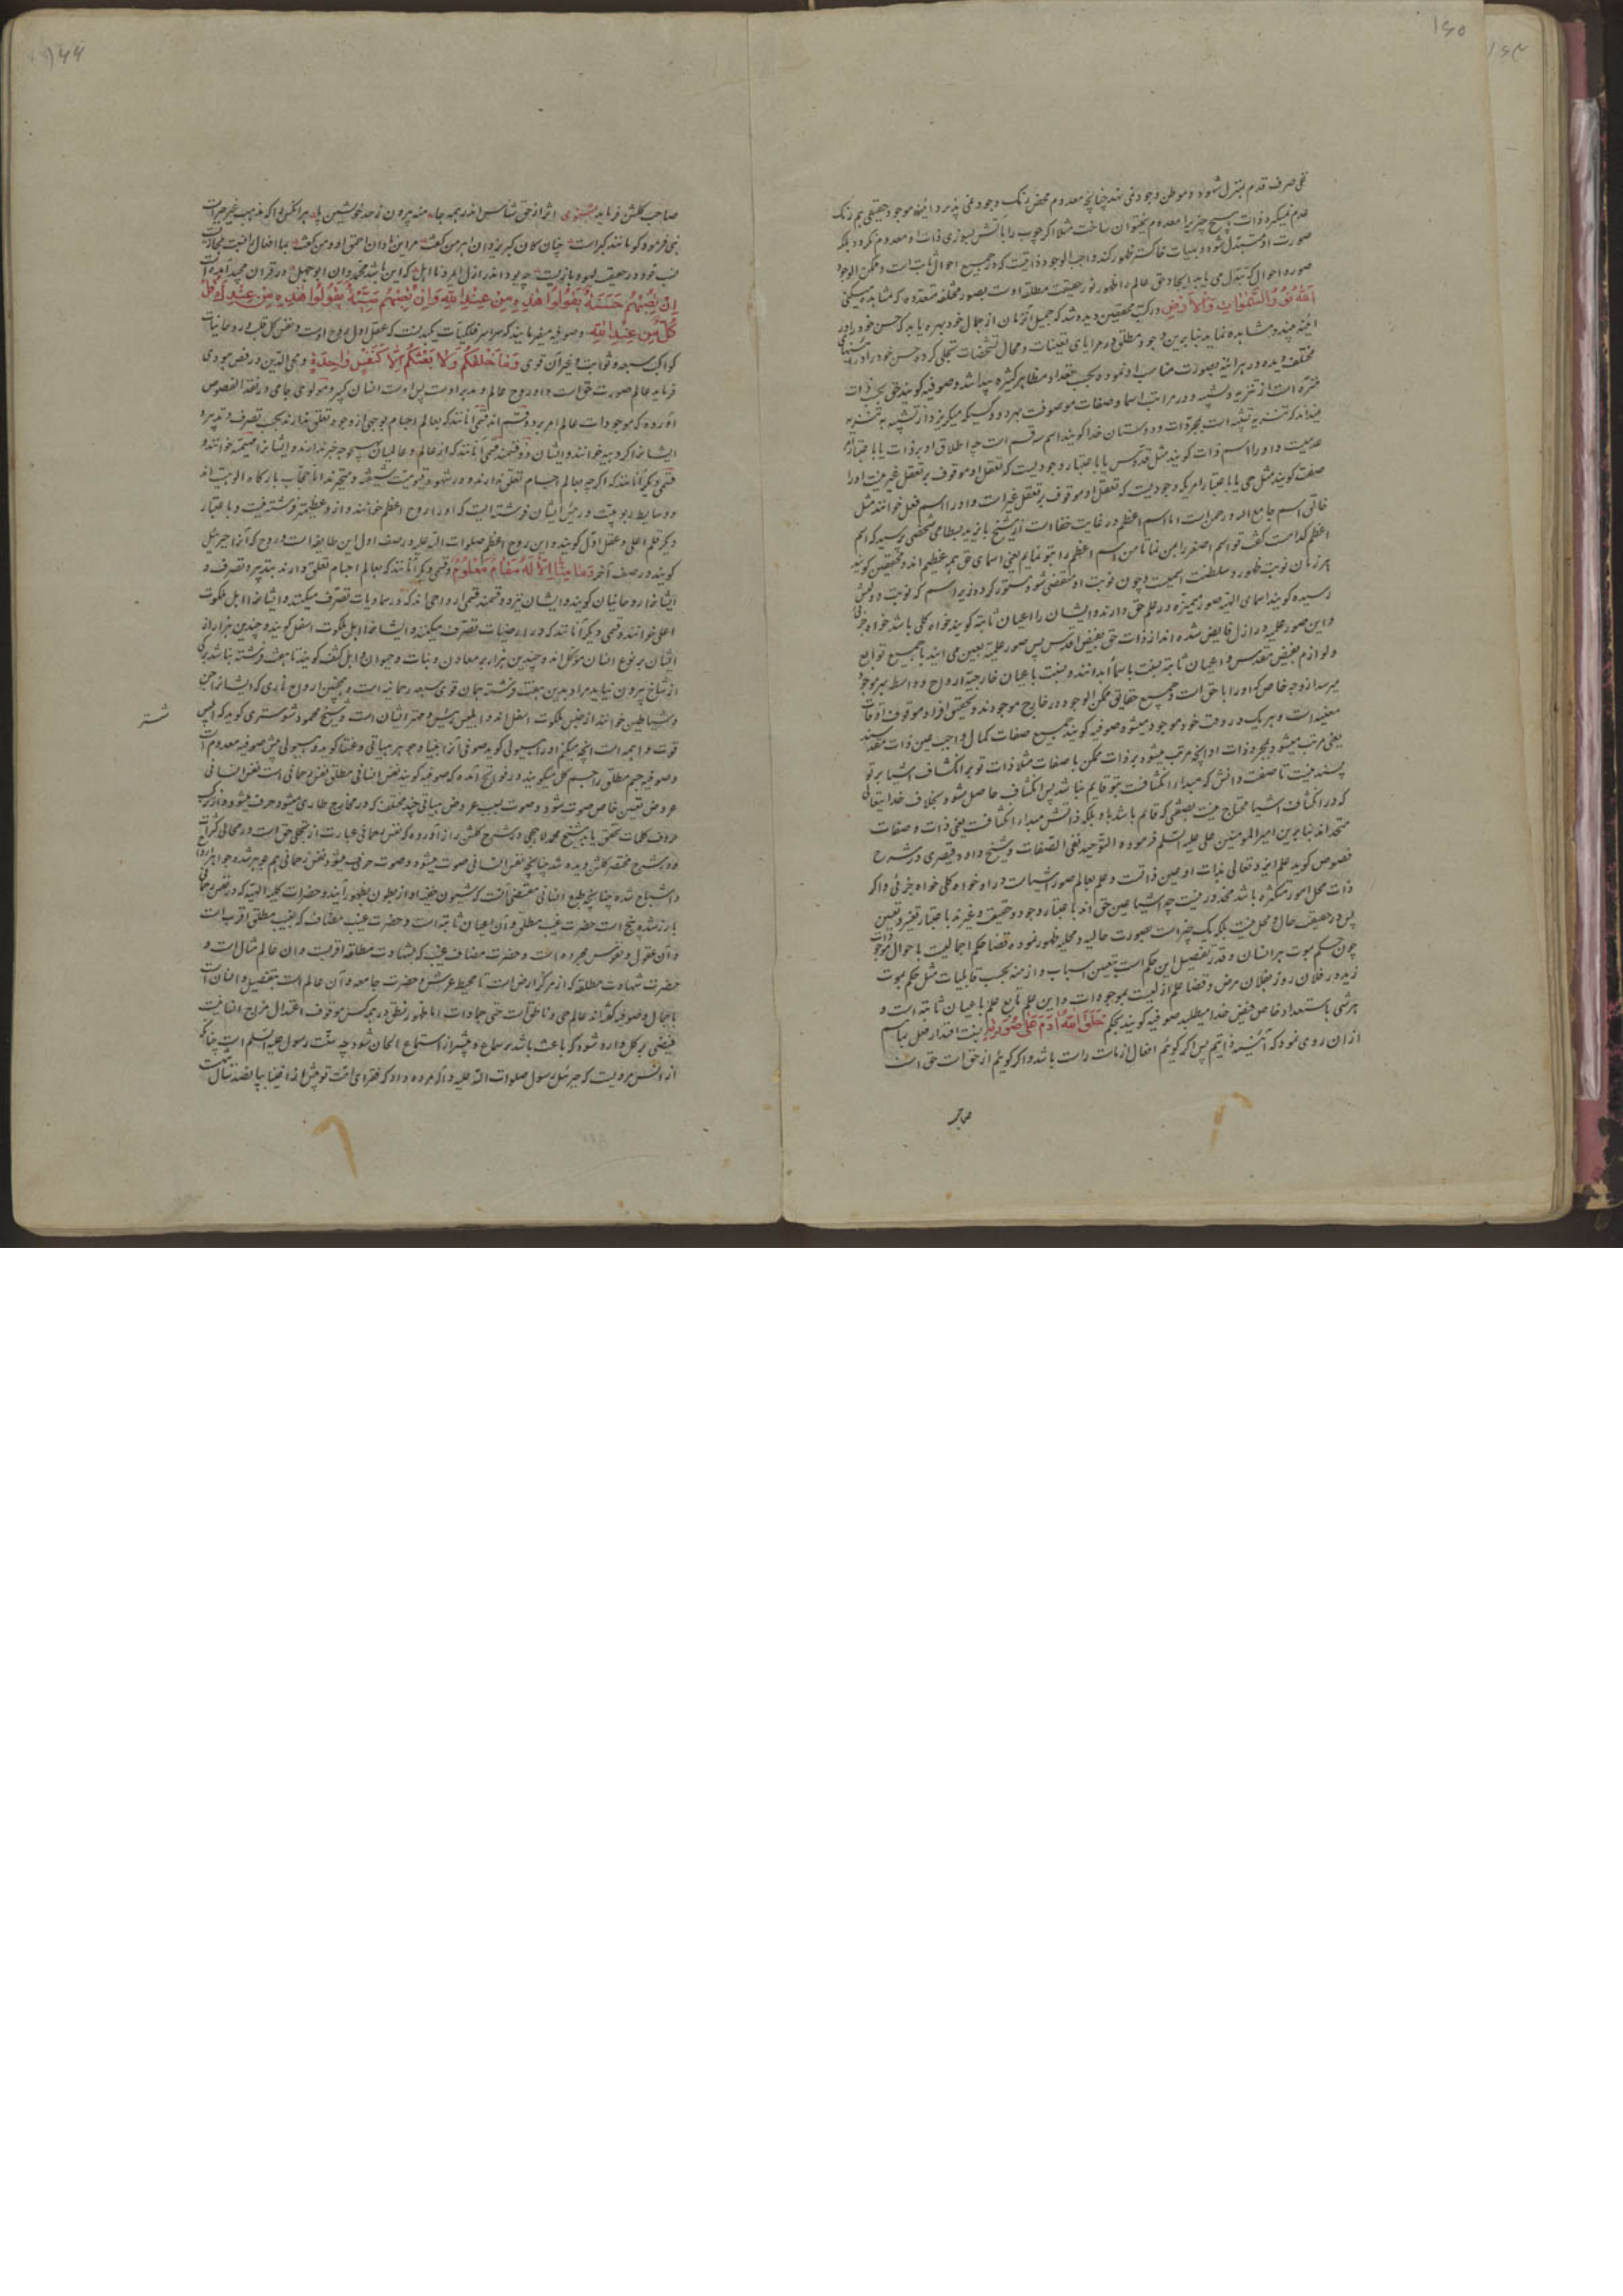 ۱۶۵
نفی صرف قدم بمنزل شهود و موطن وجود نمی نهد چنانچه معدوم محض رنگ وجود نمی پذیرد آینه موجود حقیقی هم رنگ
عدم نمیگیرد ذات هیچ چیز را معدوم نمیتوان ساخت مثلا اگر چوب را بآتش بسوزی ذات او معدوم نگردد بلکه
صورت او متبدل شود و بهیات خاکستر ظهور کند واجب الوجود ذاتیست که در جمیع احوال ثابت است و ممکن الوجود
صور و احوال که تبدل می یابد ایجاد حق عالم را ظهور نور حقیقت مطلقه اوست بصور مختلفه متعدده که مشاهده میکنی
اَللّٰهُ نُورُ السَّمٰوٰاتِ وَالْاَرْضِ در کتب محققین دیده شد که جمیل آنزمان از جمال خود بهره یابد که حسن خود را در
آینه بیند و مشاهده نماید بنابرین وجود مطلق در مرایای تعینات و مجال تشخصات تجلی کرد و حسن خود را در آینهای
مختلف دیده در هر آینه بصورت مناسب او نموده بحسب تعداد مظاهر کثیره پیدا شد و صوفیه گویند حق بحسب ذات
منزه است از تنزیه و تشبیه و در مراتب اسما و صفات موصوفست بهر دو و کسیکه میگریزد از تشبیه به تنزیه
نمیداند که تنزیه تشبیه است بمجردات و دوستان خدا گویند اسم سه قسم است چه اطلاق او بر ذات یا باعتبار امر
عدمیست و او را اسم ذات گویند مثل قدوس یا باعتبار وجودیست که تعقل او موقوف بر تعقل غیر نیست او را
صفت گویند مثل حی یا باعتبار امریکه وجودیست که تعقل او موقوف بر تعقل غیر است و او را اسم فعل خوانند مثل
خالق اسم جامع الله و رحمن است اما اسم اعظم در غایت خفا است از شیخ بایزید بسطامی شخصی پرسید که اسم
اعظم کدامست گفت تو اسم اصغر را بمن نما تا من اسم اعظم را بتو نمایم یعنی اسمای حق همه عظیم اند و محققین گویند
هر زمان نوبت ظهور و سلطنت اسمیست و چون نوبت او منقضی شود مستور گردد زیر اسم که نوبت دولتش
رسیده گویند اسمای الهیه صور ممیزه در علم حق دارند و ایشان را اعیان ثابته گویند خواه کلی باشد خواه جزئی
و این صور علمیه در ازل فایض شده اند از ذات حق بفیض اقدس پس صور علمیه بعین می آیند با جمیع توابع
و لوازم بفیض مقدس و اعیان ثابته نسبت باسما ابدانند و نسبت باعیان خارجیه ارواح و واسطه بهر موجود
میرسد از وجه خاص که او را با حق است و جمیع حقایق ممکن الوجود در خارج موجودند و تحقیق افراد موقوف اوقات
معینه است و هر یک در وقت خود موجود میشود صوفیه گویند جمیع صفات کمال واجب عین ذات مقدسند
یعنی مرتب میشود بمجرد ذات او آنچه مرتب میشود بر ذات ممکن با صفات مثلا ذات تو بر انکشاف اشیا بر تو
بسنده نیست تا صفت دانش که مبداء انکشافست بتو قایم نباشد پس انکشاف حاصل شود بخلاف خدا یتعالی
که در انکشاف اشیا محتاج نیست بصفتی که قائم باشد باو بلکه ذاتش مبداء انکشافست یعنی ذات و صفات
متحد اند بنابرین امیر المومنین علی علیه السلم فرموده التوحید نفی الصفات و شیخ داود قیصری در شرح
فصوص گوید علم ایزد تعالی بذات او عین ذاتست و علم بعالم صور اشیاست در او خواه کلی خواه جزئی و اگر
ذات محل امور متکثره باشد محذور نیست چه اشیا عین حق اند باعتبار وجود و حقیقت و غیرند باعتبار تقید و تعین
پس در حقیقت حال و محل نیست بلکه یک چیز است بصورت حالیه و محلیه ظهور نموده قضا حکم اجمالیست باحوال موجودات
چون حکم بموت هر انسان و قدر تفصیل این حکم است بتعیین اسباب و ازمنه بحسب قابلیات مثل حکم بموت
زید در فلان روز بفلان مرض و قضا علم ازلیست بموجودات و این علم تابع علم باعیان ثابته است و
هر شی باستعداد خاص فیض خدا میطلبد صوفیه گویند بحکم خَلَقَ اللّٰهُ اٰدَمَ عَلٰی صُوْرَتِهٖ نسبت اقتدار فعل بما هم
از آن روی نمود که آئینه ذاتیم پس اگر گوئیم افعال از ماست راست باشد و اگر گوئیم از حق است حق است
صاحب
۱۶۶
صاحب گلشن فرماید مثنوی اثر از حق شناس اندر همه جا منه بیرون ز حد خویشتن پا هر آنکس را که مذهب غیر جبر است
نبی فرمود کو مانند گبر است چنان کان گبر یزدان اهرمن گفت مر این نادان احمق او و من گفت بما افعال را نسبت مجازیست
نسب خود در حقیقت لهو و بازیست چه بود اندر ازل ای مرد نا اهل که این باشد محمد و آن ابو جهل در قرآن مجید آمده است
اِنْ تُصِبْهُمْ حَسَنَةٌ یَقُولُوْا هٰذِهٖ مِنْ عِنْدِ اللّٰهِ وَاِنْ تُصِبْهُمْ سَیِّئَةٌ یَقُوْلُوْا هٰذِهٖ مِنْ عِنْدِكَ قُلْ
كُلٌّ مِّنْ عِنْدِ اللّٰهِ و صوفیه میفرمایند که سراسر فلکیات یکبدنست که عقل اول روح اوست و نفس کل قلب او و روحانیات
کواکب سبعه و ثوابت و غیر آن قوی وَمَا خَلْقُكُمْ وَلَا بَعْثُكُمْ اِلَّا كَنَفْسٍ وَاحِدَةٍ و محی الدین در فص هودی
فرماید عالم صورت حق است و او روح عالم و مدبر اوست پس اوست انسان کبیر و مولوی جامی در نقد الفصوص
آورده که موجودات عالم امر بر دو قسم اند قسمی آنانند که بعالم اجسام بوجهی از وجوه تعلق ندارند بحسب تصرف و تدبیر و
ایشانرا کروبیه خوانند و ایشان دو قسمند قسمی آنانند که از عالم و عالمیان هیچ وجه خبر ندارند و ایشانرا مهیمه خوانند و
قسمی دیگر آنانند که اگر چه بعالم اجسام تعلق ندارند و در شهود قیومیت شیفته و متحیرند اما حجاب بارگاه الوهیت اند
و وسایط ربوبیت و رئیس ایشان فرشته ایست که او را روح اعظم خوانند و از و عظیمتر فرشته نیست و باعتبار
دیگر قلم اعلی و عقل اول گویند و این روح اعظم صلوات الله علیه در صف اول این طایفه است و روح که آنرا جبرئیل
گویند در صف آخر وَمَا مِنَّا اِلَّا لَهٗ مَقَامٌ مَعْلُوْمٌ و قسمی دیگر آنانند که بعالم اجسام تعلق دارند بتدبیر و تصرف و
ایشانرا روحانیان گویند و ایشان نیز دو قسمند قسمی ارواحی اند که در سماویات تصرف میکنند و ایشانرا اهل ملکوت
اعلی خوانند و قسمی دیگر آنانند که در ارضیات تصرف میکنند و ایشانرا اهل ملکوت اسفل گویند و چندین هزار از
ایشان بر نوع انسان موکل اند و چندین هزار بر معادن و نبات و حیوان و اهل کشف گویند تا هفت فرشته نباشد برگی
از شاخ بیرون نیاید مراد بدین هفت فرشته همان قوی سبعه رحمانیه است و همچنین ارواح ناری که ایشانرا جن
و شیاطین خوانند از جنس ملکوت اسفل اند و ابلیس رئیس و مهتر ایشان است و شیخ محمود شوستری گوید که ابلیس
شستر
قوت واهمه است آنچه حکیم او را هیولی گوید صوفی آنرا هباء و جوهر هبائی و عنقا گوید و هیولی پیش صوفیه معدوم است
و صوفیه جسم مطلق را جسم کل میگویند در فواتح آمده که صوفیه گویند نفس انسانی مطلق نفس رحمانی است نفس انسانی
عروض تعین خاص صوت شود و صوت بسبب عروض هیاتی چند مختلفه که در مخارج طاری میشود حرف میشود و از ترکیب
حروف کلمات تحقق یابد شیخ محمد لاهجی در شرح گلشن راز آورده که نفس رحمانی عبارت از تجلی حق است در مجالی کثرات
و در شرح مختصر گلشن دیده شد چنانچه نفس انسانی صوت میشود و صوت حرف میشود نفس رحمانی هم جوهر شده جواهر ارواح
و اشباح شده چنانچه طبع انسانی مقتضی آنست که شیون خفیه او از بطون بظهور آیند و حضرات کلیه الهیه که در نفس رحمانی
بارز شد پنج است حضرت غیب مطلق و آن اعیان ثابته است و حضرت غیب مضاف که بغیب مطلق اقرب است
و آن عقول و نفوس مجرده است و حضرت مضاف غیب که بشهادت مطلقه اقربست و آن عالم مثال است و
حضرت شهادت مطلقه که از مرکز ارض است تا محیط عرش و حضرت جامعه و آن عالم است بتفصیل و انسان است
باجمال و صوفیه گفته اند عالم حی و ناطق است حتی جمادات اما ظهور نطق در همه کس موقوف اعتدال مزاج انسانیست
فیضی بر کل وارد شود که باعث باشد بر سماع و بیشتر از استماع الحان شود چه سنت رسول علیه السلم است چنانکه
از انس مرویست که جبرئیل رسول صلوات الله علیه و آله مژده داد که فقرای امت تو پیش از اغنیا بپانصد سال ببهشت